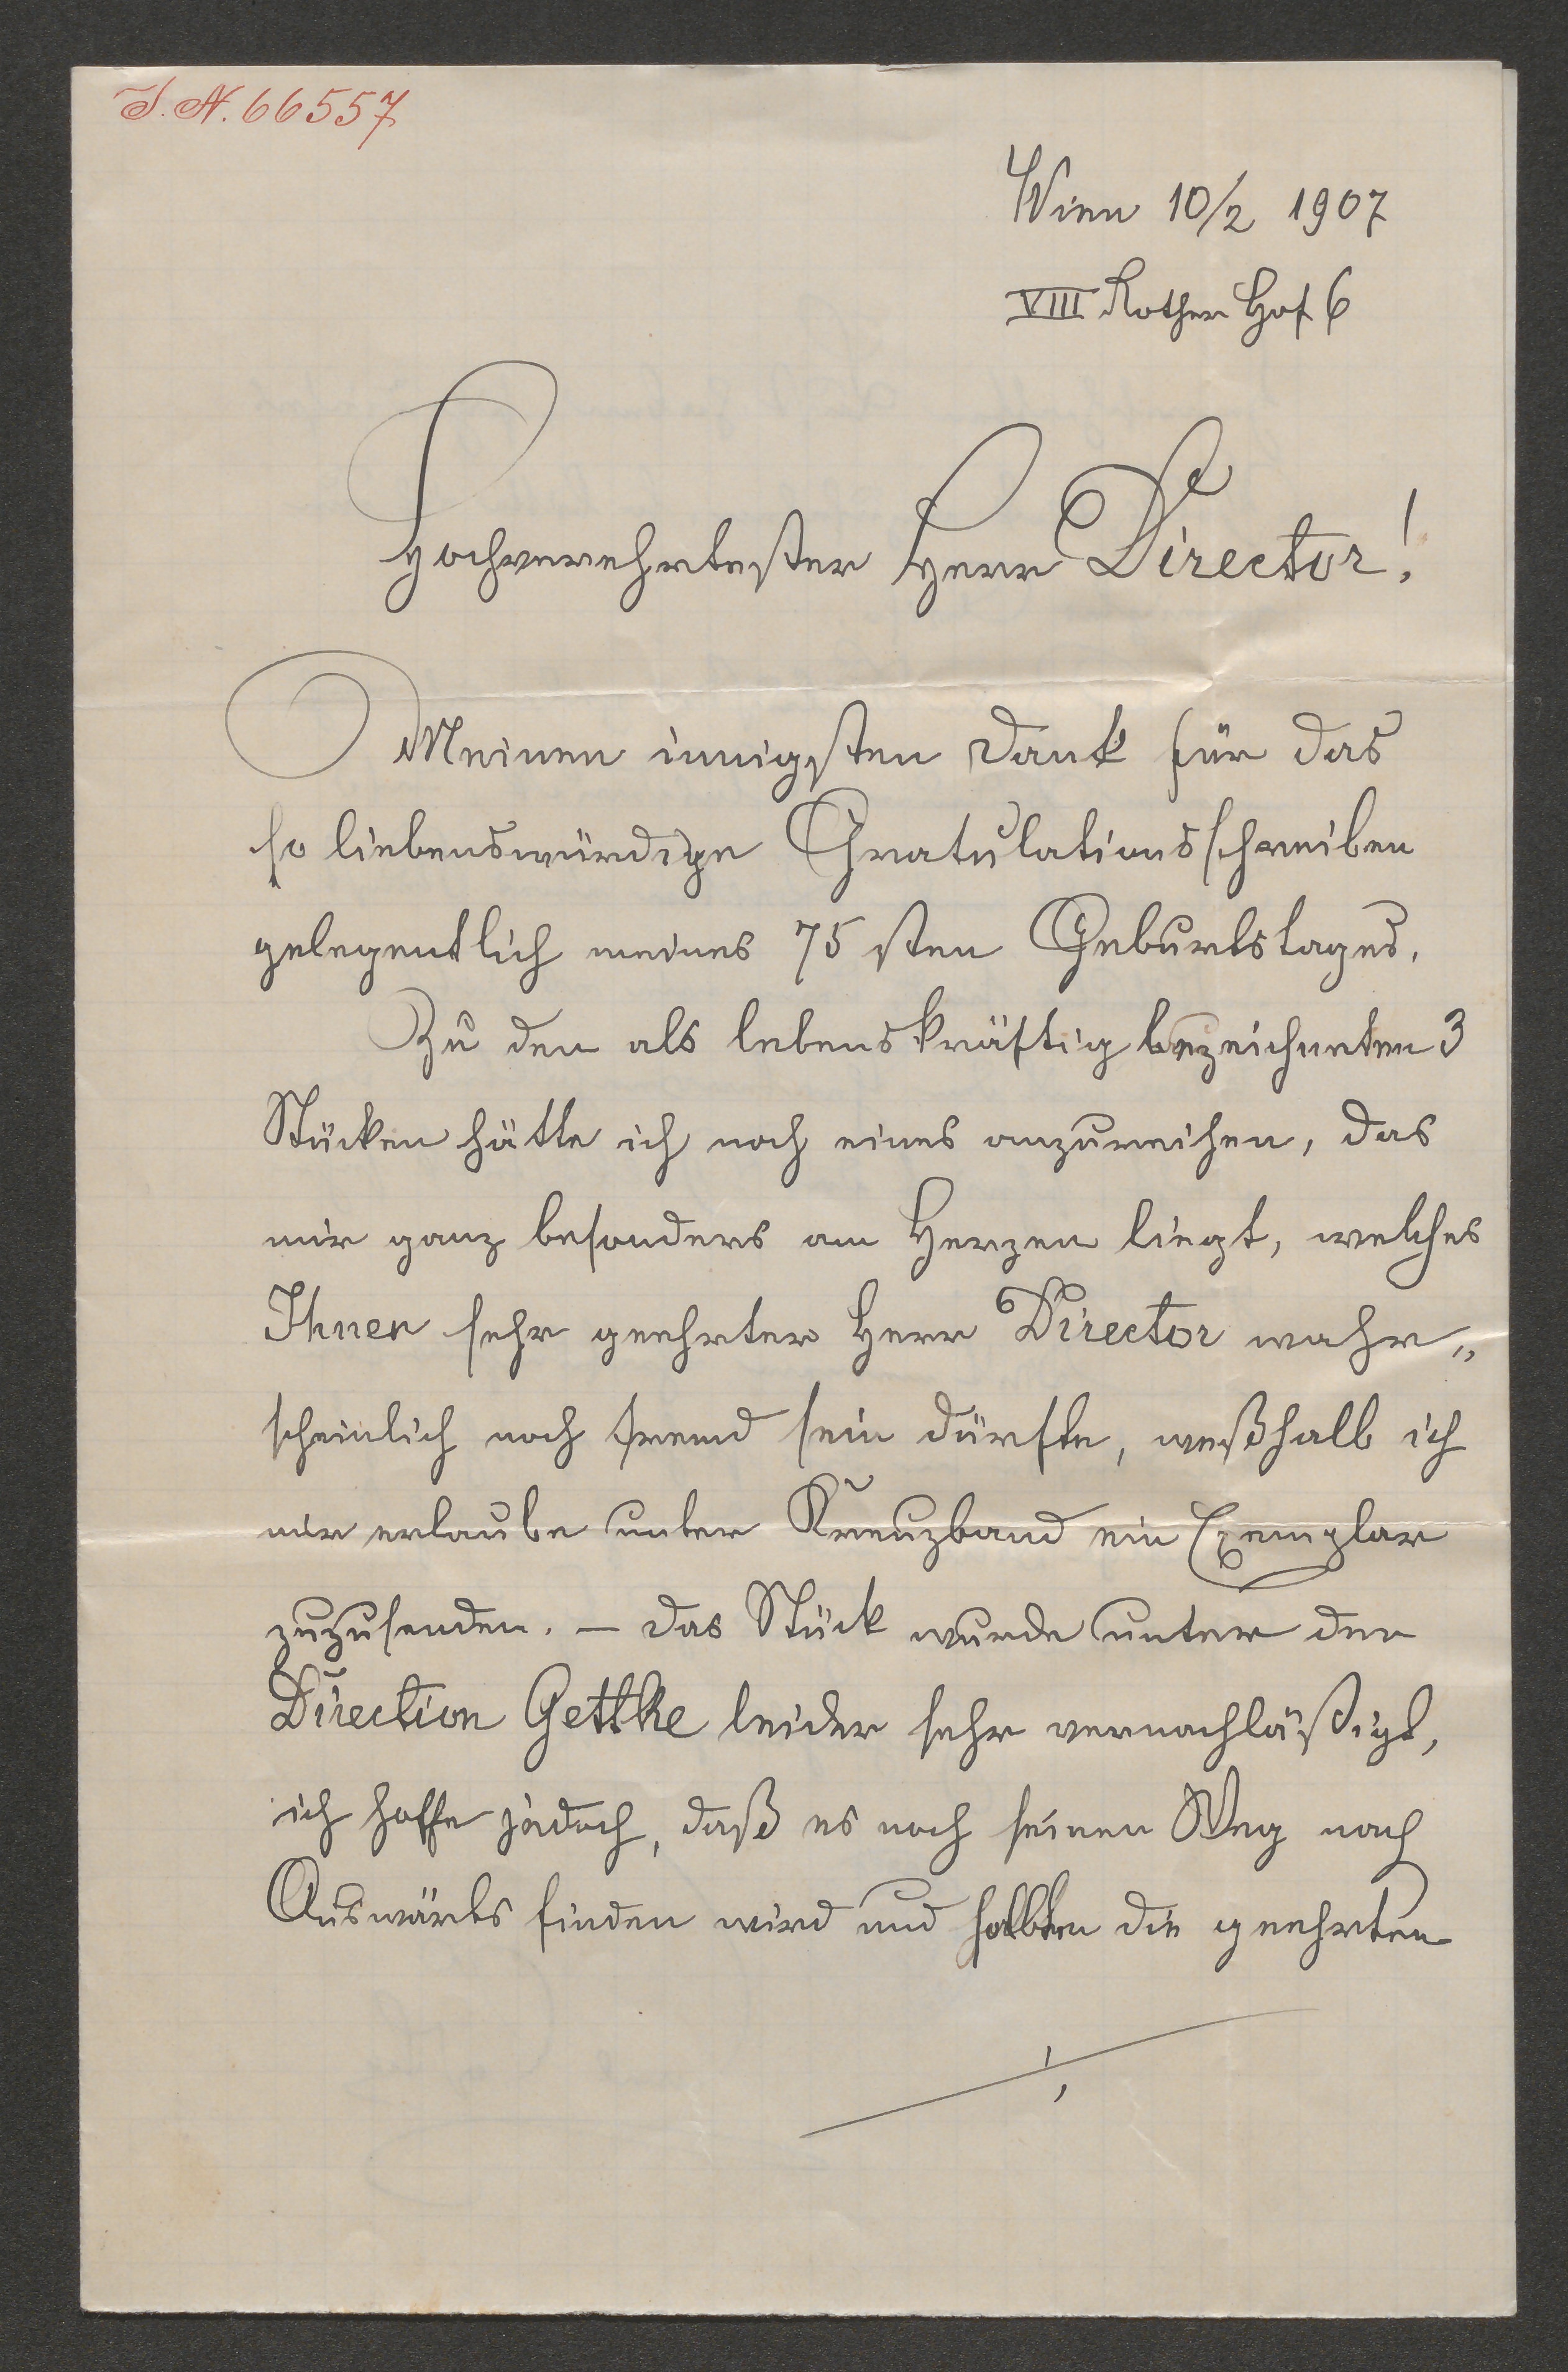 I. N. 66557
Wien 10/2 1907
VIII Rother Hof 6
Hochverehrtester Herr Director!
Meinen innigsten Dank für das
so liebenswürdige Gratulationsschreiben
gelegentlich meines 75 sten Geburtstages.
Zu den als lebenskräftig bezeichneten 3
Stücken hätte ich noch eines anzureihen, das
mir ganz besonders am Herzen liegt, welches
Ihnen sehr geehrter Herr Director wahr„
scheinlich noch fremd sein dürfte, weßhalb ich
mir erlaube unter Kreuzband ein Exemplar
zuzusenden. – Das Stück wurde unter der
Direction Gettke leider sehr vernachläßigt,
ich hoffe jedoch, daß es noch seinen Weg nach
Auswärts finden wird und sollten die geehrten